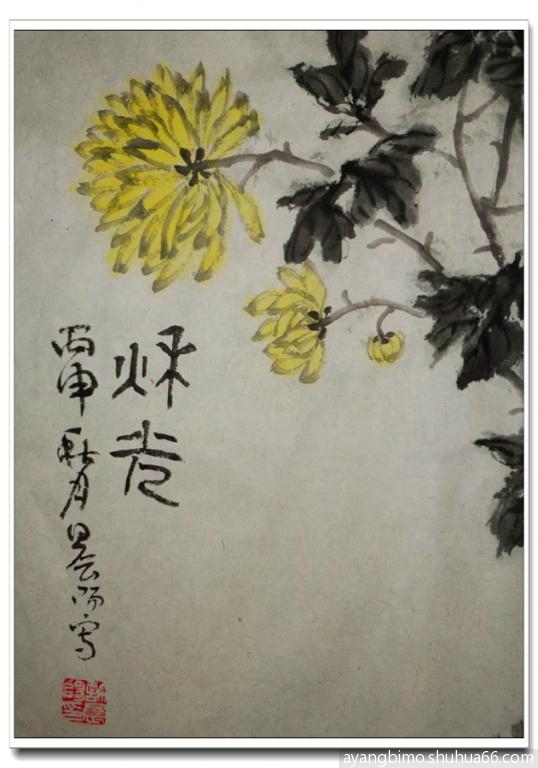 秌光
丙申秋月阳写
ayangbimo.shuhua66.com